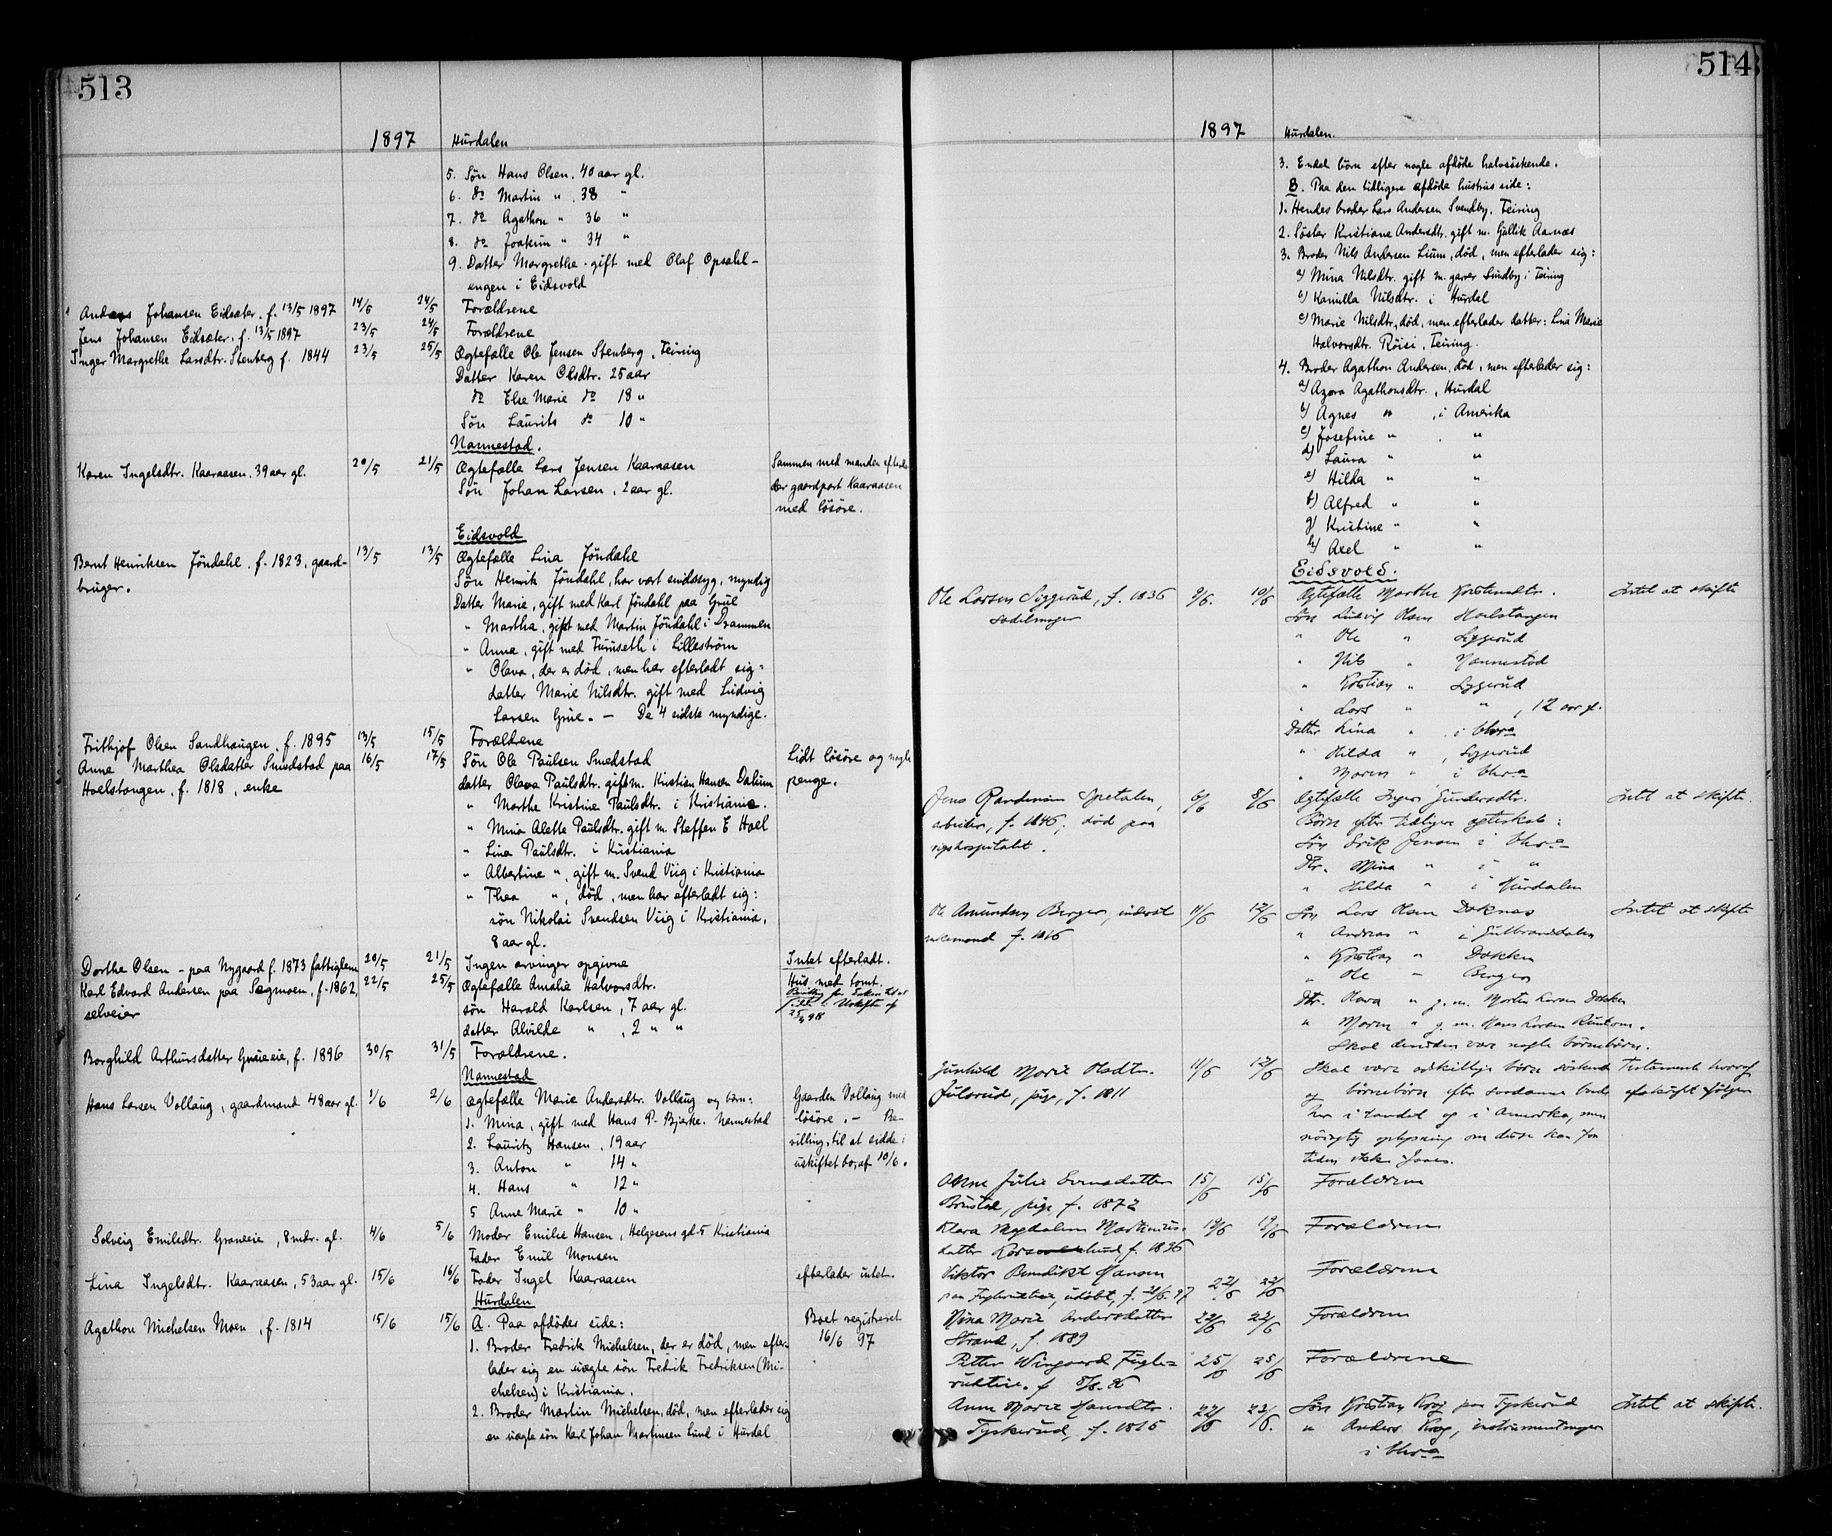 513
1897 Hurdalen
5. Søn Hans Olsen. 40 aar gl.
6. do Martin " . 38 "
7. do Agathon " 36 "
8. do Joakim " 34 "
9. Datter Margrethe. gift med Olaf Opsahl-
engen i Eidsvold
Anders Johansen Eidsæter. f. 13/5 1897 14/5 24/5 Forældrene
Jens Johansen Eidsæter. f. 13/5 1897 23/5 24/5 Forældrene
Inger Margrethe Larsdtr. Stenberg f. 1844 23/5 25/5 Ægtefælle Ole Jensen Stenberg, Feiring
Datter Karen Olsdtr. 25 aar
do Else Marie do 18 "
Søn Laurits do 10 "
Nannestad.
Karen Ingelsdtr. Kaaraasen. 39 aar gl. 20/5 21/5 Ægtefælle Lars Jensen Kaaraasen Sammen med manden efterla-
Søn Johan Larsen, 2 aar gl. der gaardpart Kaaraasen
med løsøre.
Eidsvold
Bernt Henriksen Jøndahl. f. 1823, gaard- 13/5 13/5 Ægtefælle Lina Jøndahl
bruger. Søn Henrik Jøndahl, har vært sindssyg, myndig
Datter Marie, gift med Karl Jøndahl paa Grue
" Martha, gift med Martin Jøndahl i Drammen
" Anna, gift med Furuseth i Lillestrøm
" Oleva, der er død, men har efterladt sig:
datter Marie Nilsdtr. gift med Ludvig
Larsen Grue. — De 4 sidste myndige.
Frithjof Olsen Sandhaugen. f. 1895 13/5 15/5 Forældrene
Anne Marthea Olsdatter Smedstad paa 16/5 17/5 Søn Ole Paulsen Smedstad Lidt løsøre og nogle
Hoelstangen, f. 1818, enke datter Oleva Paulsdtr. gift m. Kristian Hansen Dalum penge.
" Marthe Kristine Paulsdtr. i Kristiania.
" Mina Alette Paulsdtr. gift m. Steffen E Hoel
" Lina Paulsdtr. i Kristiania
" Albertine ", gift m. Svend Viig i Kristiania
" Thea ", død, men har efterladt sig:
søn Nikolai Svendsen Viig i Kristiania,
8 aar gl.
Dorthe Olsen - paa Nygaard f. 1873 fattiglem 20/5 21/5 Ingen arvinger opgivne Intet efterladt.
Karl Edvard Andersen paa Sagmoen, f. 1862, 22/5 25/5 Ægtefælle Amalie Halvorsdtr. Hus med tomt.
selveier søn Harald Karlsen, 7 aar gl.
datter Alvilde " , 2 " "
Borghild Arthursdatter Grueeie, f. 1896 30/5 31/5 Forældrene.
Nannestad
Hans Larsen Vollaug, gaardmand 48 aar gl. 1/6 2/6 Ægtefælle Marie Andersdtr. Vollaug og børn: Gaarden Vollaug med
1. Mina, gift med Hans P. Bjerke. Nannestad løsøre. — Be-
2. Lauritz Hansen, 19 aar villing til at sidde i
3. Anton " 14 " uskiftet bo, af 10/6.
4. Hans " 12 "
5 Anne Marie " 10 "
Solveig Emilsdtr. Graneeie, 8 mdr. gl. 4/6 5/6 Moder Emilie Hansen, Helgesens gd. 5 Kristiania
Fader Emil Monsen
Lina Ingelsdtr. Kaaraasen, 53 aar gl. 15/6 16/6 Fader Ingel Kaaraasen efterlader intet.
Hurdalen
Agathon Michelsen Moen, f. 1814 15/6 15/6 A. Paa afdødes side: Boet registreret
1. Broder Fredrik Michelsen, der er død, men efter- 16/6 97
lader sig en uægte søn Fredrik Fredriksen (Mi-
chelsen) i Kristiania.
2. Broder Martin Michelsen, død, men efterlader sig
en uægte søn Karl Johan Martinsen Lund i Hurdal
514
1897 Hurdalen.
3. Endel børn efter nogle afdøde halvsøskende.
B. Paa den tidligere afdøde hustrus side:
1. Hendes broder Lars Andersen Svendby, Feiring
2. Søster Kristiane Andersdtr. gift m. Gullik Aanæs
3. Broder Nils Andersen Lium, død, men efterlader sig:
a) Mina Nilsdtr. gift m. garver Sundby i Feiring
b) Kamilla Nilsdtr. i Hurdal
c) Marie Nilsdtr, død, men efterlader datter: Lina Marie
Halvorsdtr. Röisi, Feiring.
4. Broder Agathon Andersen, død, men efterlader sig:
a) Azora Agathonsdtr., Hurdal
b) Agnes " , i Amerika
c) Josefine " . "
d) Laura " "
e) Hilda " "
f) Alfred " "
g) Kristine " "
h) Axel " "
Eidsvold.
Ole Larsen Syggerud, f. 1836 9/6. 10/6 Ægtefælle Marthe Kristensdtr. Intet at skifte
sadelmager Søn Ludvig Olsen Hoelstangen
" Ole " Syggerud
" Nils " Nannestad
" Kristian " Syggerud
" Lars " " , 12 aar gl.
Datter Lina " i Chr.a
" Hilda " , Syggerud
" Maren " i Chr.a
Jens Spetalen, 6/6 8/6 Ægtefælle Inger Gundersdtr. Intet at skifte
arbeider, f. 1846; død paa Børn efter tidligere ægteskab:
rigshospitalet. Søn Erik Jensen i Chr.a
Dtr. Mina " i "
" Hilda " i Hurdalen
Ole Amundsen Berger, inderst 11/6 12/6 Søn Lars Olsen Doknæs Intet at skifte
enkemand f. 1816 " Andreas " i Gulbrandsdalen
" Kristian " Dokken
" Ole — Berger
Dtr. Olava " g. m. Morten Larsen Dokken
" Maren " g. m. Hans Larsen
Skal desuden være nogle børnebørn.
Gunhild Marie Olsdtr. 11/6 12/6 Skal være adskillige børn søskende Testament hvoraf
Julsrud, pige, f. 1811 og børnebørn efter saadanne baade afskrift følger
her i landet og i Amerika, men
nøiagtig oplysning om disse kan for
tiden ikke faaes.
Anne Julie Svensdatter 15/6 15/6 Forældrene
Brustad, pige f. 1872
Klara Magdalena Martinius- 19/6 19/6 Forældrene
datter f. 1896
Viktor Benedikt Hansen 22/6 22/6 Forældrene
paa Fuglerudeie, udøbt, f. 21/6. 97
Nina Marie Andersdatter 22/6 22/6 Forældrene
Strand, f. 1889
Petter Wingaard Fugle- 25/6 25/6 Forældrene
rudeie. f 5/8. 96
Anne Marie Hansdtr. 22/6 23/6. Søn Kristian Krog paa Tyskerud Intet at skifte.
Tyskerud, f. 1815 " Anders Krog, instrumentmager
i Chr.a